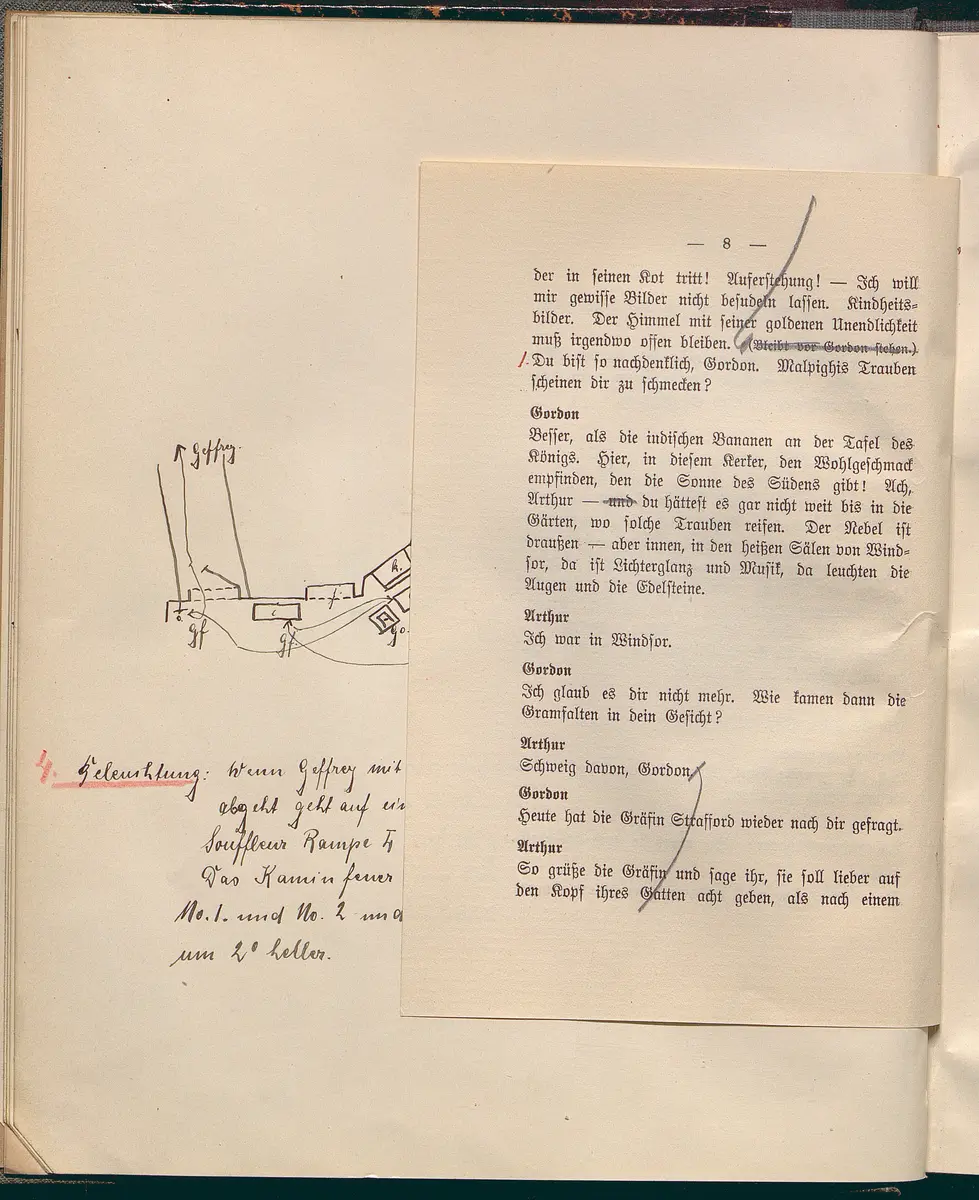 — 8 —
der in seinen Kot tritt! Auferstehung! — Ich will
mir gewisse Bilder nicht besudeln lassen. Kindheits-
bilder. Der Himmel mit seiner goldenen Unendlichkeit
muß irgendwo offen bleiben. (Bleibt vor Gordon stehen.)
Du bist so nachdenklich, Gordon. Malpighis Trauben
scheinen dir zu schmecken?
Gordon
Besser, als die indischen Bananen an der Tafel des
Königs. Hier, in diesem Kerker, den Wohlgeschmack
empfinden, den die Sonne des Südens gibt! Ach,
Arthur — und du hättest es gar nicht weit bis in die
Gärten, wo solche Trauben reifen. Der Nebel ist
draußen — aber innen, in den heißen Sälen von Wind-
sor, da ist Lichterglanz und Musik, da leuchten die
Augen und die Edelsteine.
Arthur
Ich war in Windsor.
Gordon
Ich glaub es dir nicht mehr. Wie kamen dann die
Gramfalten in dein Gesicht?
Arthur
Schweig davon, Gordon
Gordon
Heute hat die Gräfin Strafford wieder nach dir gefragt.
Arthur
So grüße die Gräfin und sage ihr, sie soll lieber auf
den Kopf ihres Gatten acht geben, als nach einem
Geffrey.
k.
Gf
Gf
A
Go.
4. Beleuchtung: Wenn Geffrey mit
abgeht geht auf ein
Souffleur Rampe
Das Kaminfeuer
No. 1. und No. 2 und
um 2° heller.